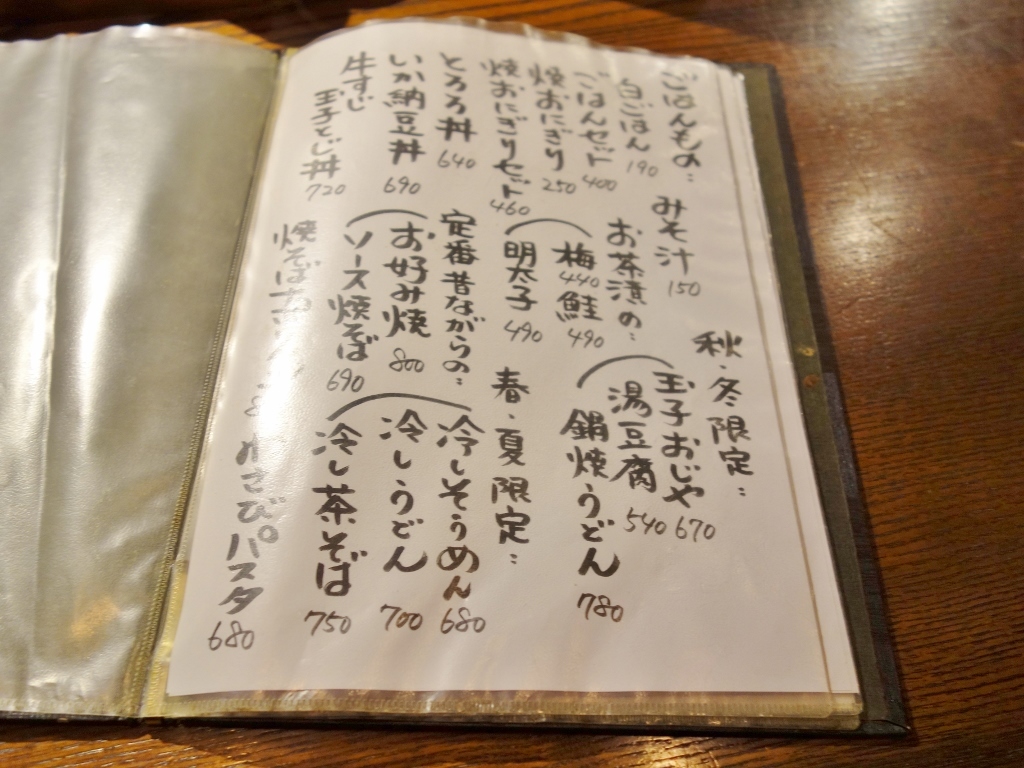 ごはんもの:
白ごはん 190
ごはんセット 400
焼おにぎり 250
焼おにぎりセット 460
とろろ丼 640
いか納豆丼 690
牛すじ
玉子とじ丼 720
みそ汁 150
お茶漬の:
梅 440
鮭 490
明太子 490
定番昔ながらの:
お好み焼 800
ソース焼そば 690
焼そば
秋・冬限定:
玉子おじや 670
湯豆腐 540
鍋焼うどん 780
春・夏限定:
冷しそうめん 680
冷しうどん 700
冷し茶そば 750
わさびパスタ 680